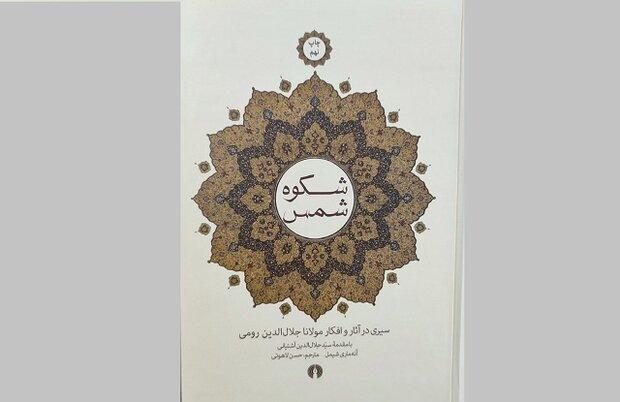 چاپ
نهم
شکوه
شمس
سیری در آثار و افکار مولانا جلال‌الدین رومی
با مقدمهٔ سیّد جلال‌الدین آشتیانی
آنه‌ماری شیمل مترجم: حسن لاهوتی